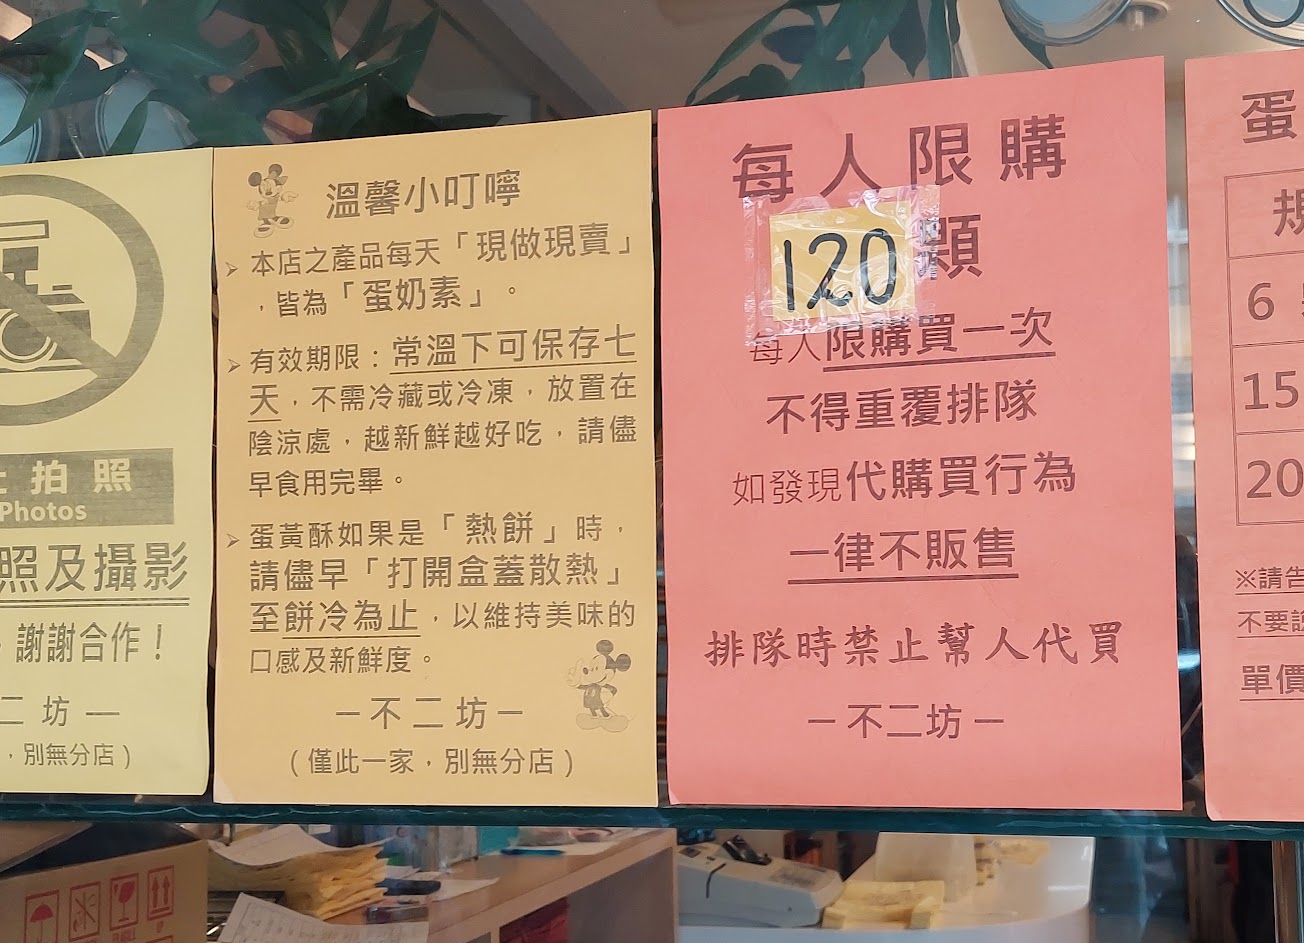 拍照
Photos
照及攝影
，謝謝合作！
二坊－
，別無分店）
溫馨小叮嚀
本店之產品每天「現做現賣」
，皆為「蛋奶素」。
有效期限：常溫下可保存七
天，不需冷藏或冷凍，放置在
陰涼處，越新鮮越好吃，請儘
早食用完畢。
蛋黃酥如果是「熱餅」時，
請儘早「打開盒蓋散熱」
至餅冷為止，以維持美味的
口感及新鮮度。
－不二坊－
（僅此一家，別無分店）
每人限購
120顆
每人限購買一次
不得重覆排隊
如發現代購買行為
一律不販售
排隊時禁止幫人代買
－不二坊－
蛋
規
6
15
20
※請告
不要
單價